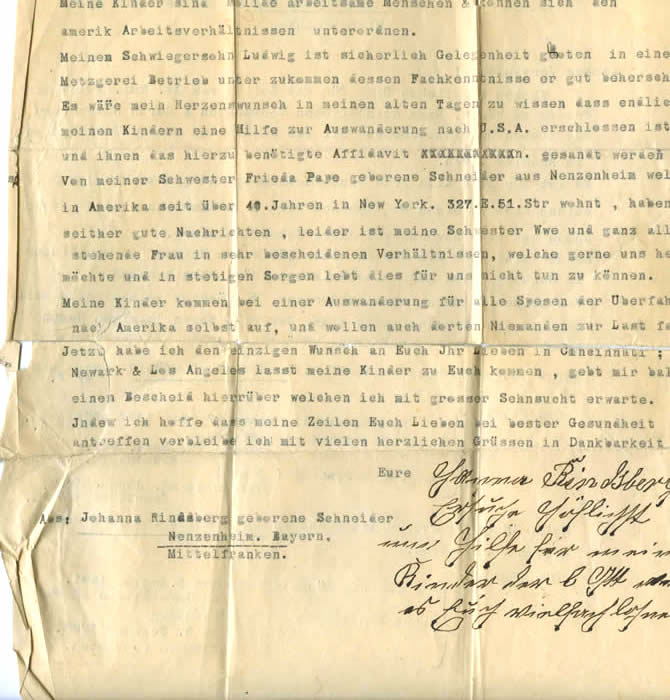 Meine Kinder sind solide arbeitsame Menschen & können sich den
amerik Arbeitsverhältnissen unterordnen.
Meinem Schwiegersohn Ludwig ist sicherlich Gelegenheit geboten in eine
Metzgerei Betrieb unter zukommen dessen Fachkenntnisse er gut behersch
Es wäre mein Herzenswunsch in meinen alten Tagen zu wissen dass endlic
meinen Kindern eine Hilfe zur Auswanderung nach U.S.A. erschlossen ist
und ihnen das hierzu benötigte Affidavit XXXXXXXXXXXn. gesandt werden
Von meiner Schwester Frieda Pape geborene Schneider aus Nenzenheim wel
in Amerika seit über 40.Jahren in New York. 327.E.51.Str wohnt , haben
seither gute Nachrichten , leider ist meine Schwester Wwe und ganz all
stehende Frau in sehr bescheidenen Verhältnissen, welche gerne uns he
möchte und in stetigen Sorgen lebt dies für uns nicht tun zu können.
Meine Kinder kommen bei einer Auswanderung für alle Spesen der Überfah
nach Amerika selbst auf, und wollen auch dorten Niemanden zur Last fa
Jetzt habe ich den einzigen Wunsch an Euch Jhr Lieben in Cincinnati ;
Newark & Los Angeles lasst meine Kinder zu Euch kommen , gebt mir bal
einen Bescheid hierrüber welchen ich mit grosser Sehnsucht erwarte.
Jndem ich hoffe dass meine Zeilen Euch Lieben bei bester Gesundheit
antreffen verbleibe ich mit vielen herzlichen Grüssen in Dankbarkeit
Eure Hanna Rindsberg
Ersuche höflichst
um Hilfe für mein
Kinder der b Gtt
es Euch vielfach lohne
Aus; Johanna Rindsberg geborene Schneider
Nenzenheim. Bayern.
Mittelfranken.